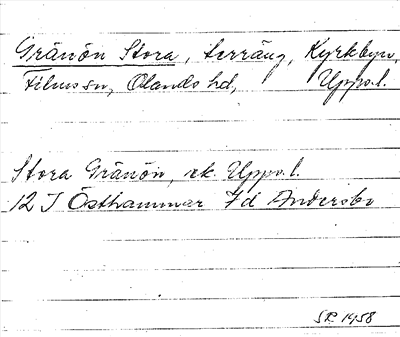 Gränön Stora, terräng, Kyrkbyn,
Films sn, Olands hd, Upps.l.
Stora Gränön, ek. Upps.l.
12 I Östhammar 7d Andersbo
SR 1958